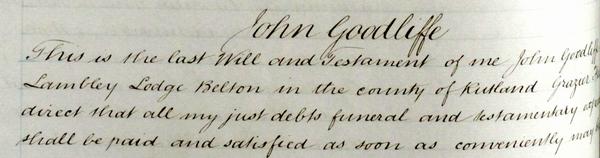 John Goodliffe
This is the last Will and Testament of me John Goodliffe
Lambley Lodge Belton in the county of Rutland Grazier
direct that all my just debts funeral and testamentary
shall be paid and satisfied as soon as conveniently may